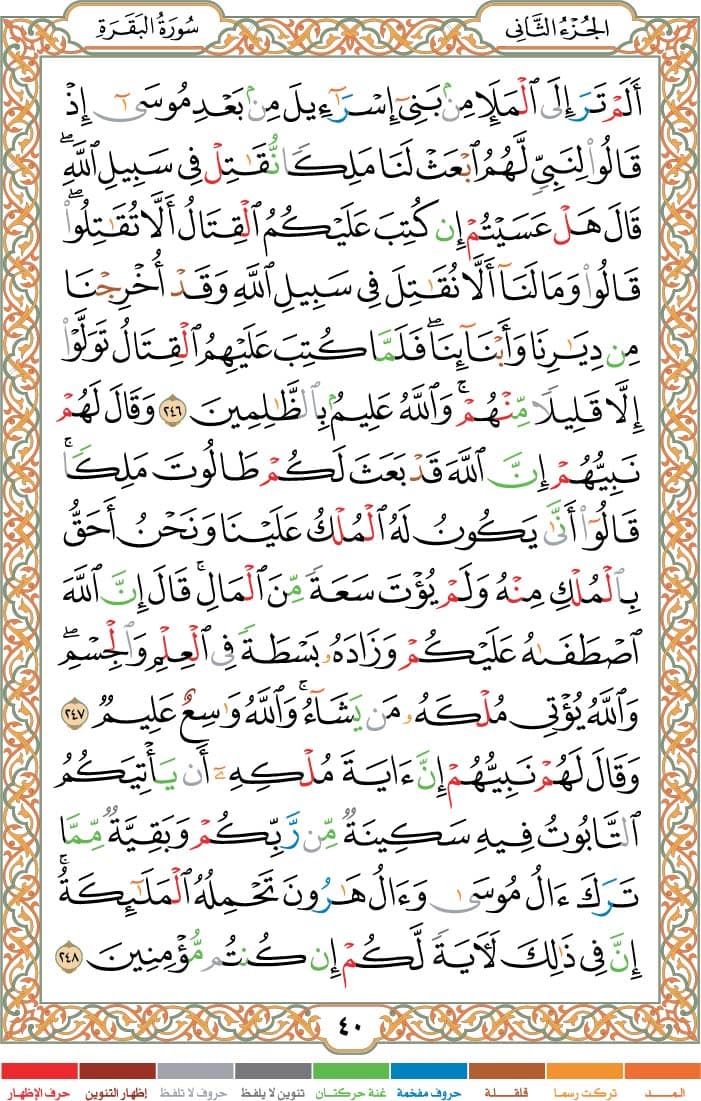 الجُزْءُ الثَّانِي
سُورَةُ البَقَرَةِ
أَلَمْ تَرَ إِلَى ٱلْمَلَإِ مِنۢ بَنِىٓ إِسْرَٰٓءِيلَ مِنۢ بَعْدِ مُوسَىٰٓ إِذْ
قَالُوا۟ لِنَبِىٍّ لَّهُمُ ٱبْعَثْ لَنَا مَلِكًا نُّقَٰتِلْ فِى سَبِيلِ ٱللَّهِ ۖ
قَالَ هَلْ عَسَيْتُمْ إِن كُتِبَ عَلَيْكُمُ ٱلْقِتَالُ أَلَّا تُقَٰتِلُوا۟ ۖ
قَالُوا۟ وَمَا لَنَآ أَلَّا نُقَٰتِلَ فِى سَبِيلِ ٱللَّهِ وَقَدْ أُخْرِجْنَا
مِن دِيَٰرِنَا وَأَبْنَآئِنَا ۖ فَلَمَّا كُتِبَ عَلَيْهِمُ ٱلْقِتَالُ تَوَلَّوْا۟
إِلَّا قَلِيلًا مِّنْهُمْ ۗ وَٱللَّهُ عَلِيمٌۢ بِٱلظَّٰلِمِينَ ٢٤٦ وَقَالَ لَهُمْ
نَبِيُّهُمْ إِنَّ ٱللَّهَ قَدْ بَعَثَ لَكُمْ طَالُوتَ مَلِكًا ۚ
قَالُوٓا۟ أَنَّىٰ يَكُونُ لَهُ ٱلْمُلْكُ عَلَيْنَا وَنَحْنُ أَحَقُّ
بِٱلْمُلْكِ مِنْهُ وَلَمْ يُؤْتَ سَعَةً مِّنَ ٱلْمَالِ ۚ قَالَ إِنَّ ٱللَّهَ
ٱصْطَفَىٰهُ عَلَيْكُمْ وَزَادَهُۥ بَسْطَةً فِى ٱلْعِلْمِ وَٱلْجِسْمِ ۖ
وَٱللَّهُ يُؤْتِى مُلْكَهُۥ مَن يَشَآءُ ۚ وَٱللَّهُ وَٰسِعٌ عَلِيمٌ ٢٤٧
وَقَالَ لَهُمْ نَبِيُّهُمْ إِنَّ ءَايَةَ مُلْكِهِۦٓ أَن يَأْتِيَكُمُ
ٱلتَّابُوتُ فِيهِ سَكِينَةٌ مِّن رَّبِّكُمْ وَبَقِيَّةٌ مِّمَّا
تَرَكَ ءَالُ مُوسَىٰ وَءَالُ هَٰرُونَ تَحْمِلُهُ ٱلْمَلَٰٓئِكَةُ ۚ
إِنَّ فِى ذَٰلِكَ لَءَايَةً لَّكُمْ إِن كُنتُم مُّؤْمِنِينَ ٢٤٨
٤٠
المــد
تركت رسما
قلقلة
حروف مفخمة
غنة حركتان
تنوين لا يلفظ
حروف لا تلفظ
إظهار التنوين
حرف الإظهار